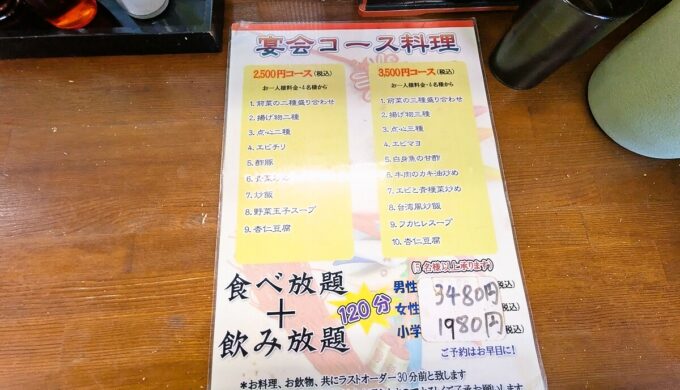 宴会コース料理
2,500円コース(税込)
お一人様料金・4名様から
1. 前菜の二種盛り合わせ
2. 揚げ物二種
3. 点心二種
4. エビチリ
5. 酢豚
6.
7. 炒飯
8. 野菜玉子スープ
9. 杏仁豆腐
3,500円コース(税込)
お一人様料金・4名様から
1. 前菜の三種盛り合わせ
2. 揚げ物三種
3. 点心三種
4. エビマヨ
5. 白身魚の甘酢
6. 牛肉のカキ油炒め
7. エビと青梗菜炒め
8. 台湾風炒飯
9. フカヒレスープ
10. 杏仁豆腐
食べ放題
+
飲み放題
120分
名様以上承ります)
男性 3480円 税込)
女性 (税込)
小学 1980円 (税込)
ご予約はお早目に!
*お料理、お飲物、共にラストオーダー30分前と致します